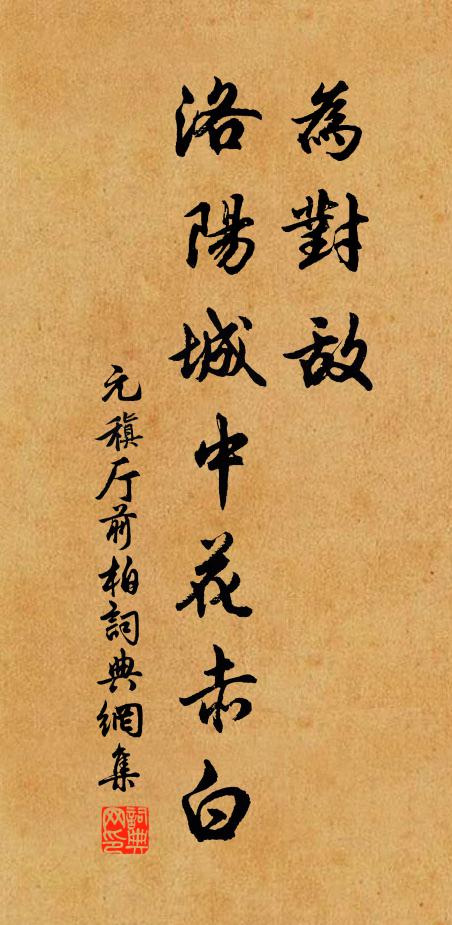 為對敌
洛陽城中花赤白
元稹厅前柏詞典網集
詞典
网印